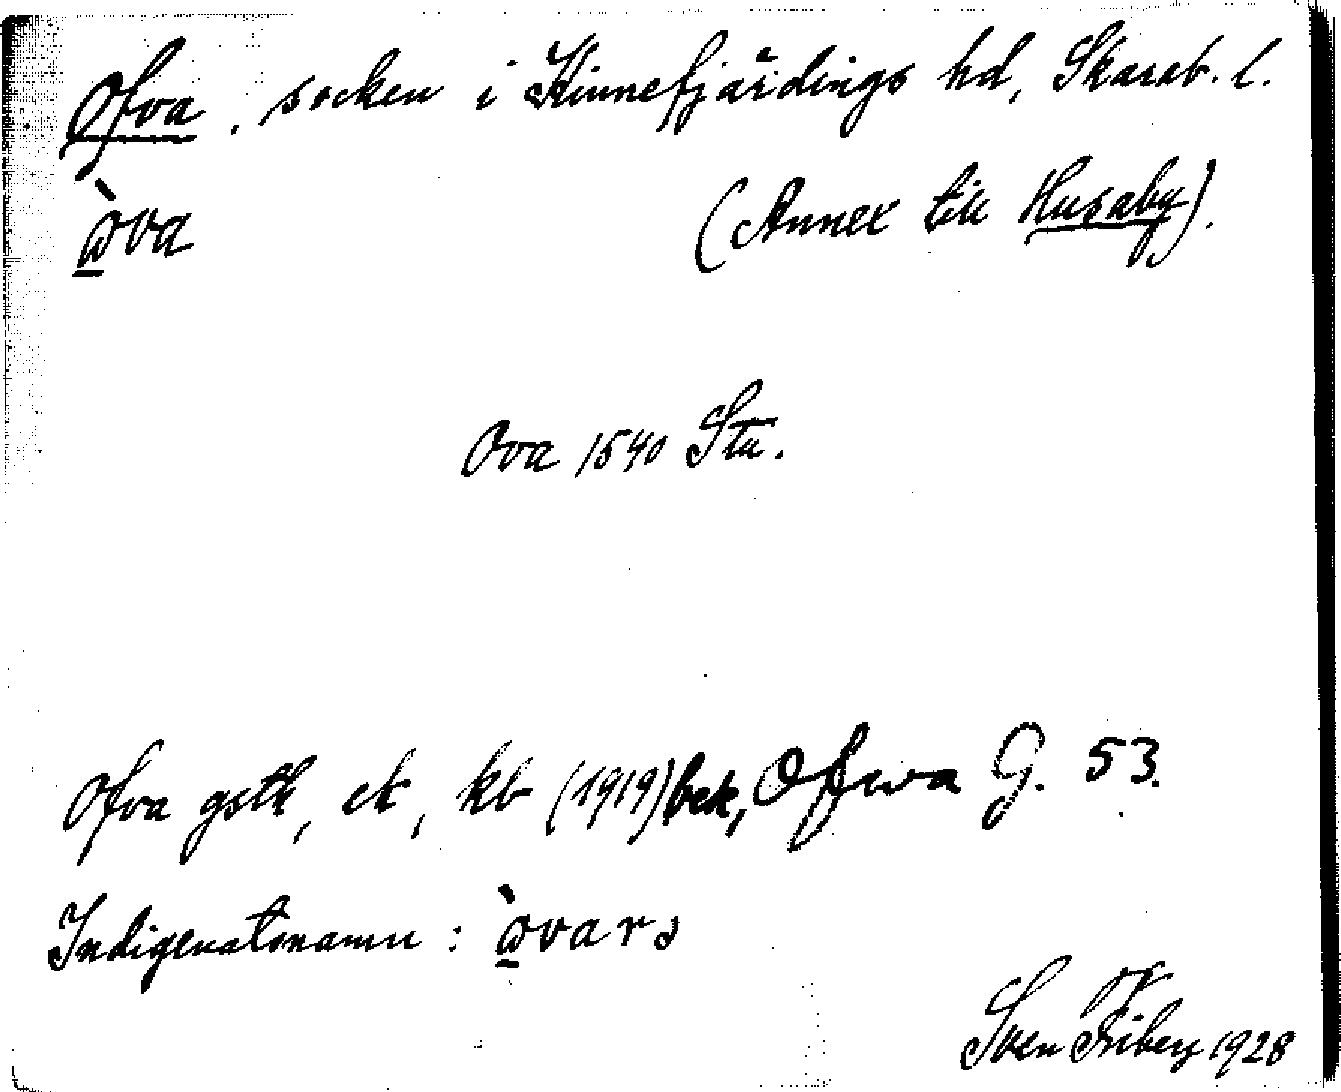 Ofva, socken i Kinnefjärdings hd, Skarab. l.
ὼ̱va (Annex till Husaby).
Ova 1540 Stu.
Ofva gstk, ek, kb (1919) bek, Offwa G. 53.
Indigenatsnamn: ὼ̱varə
Sven Friberg 1928